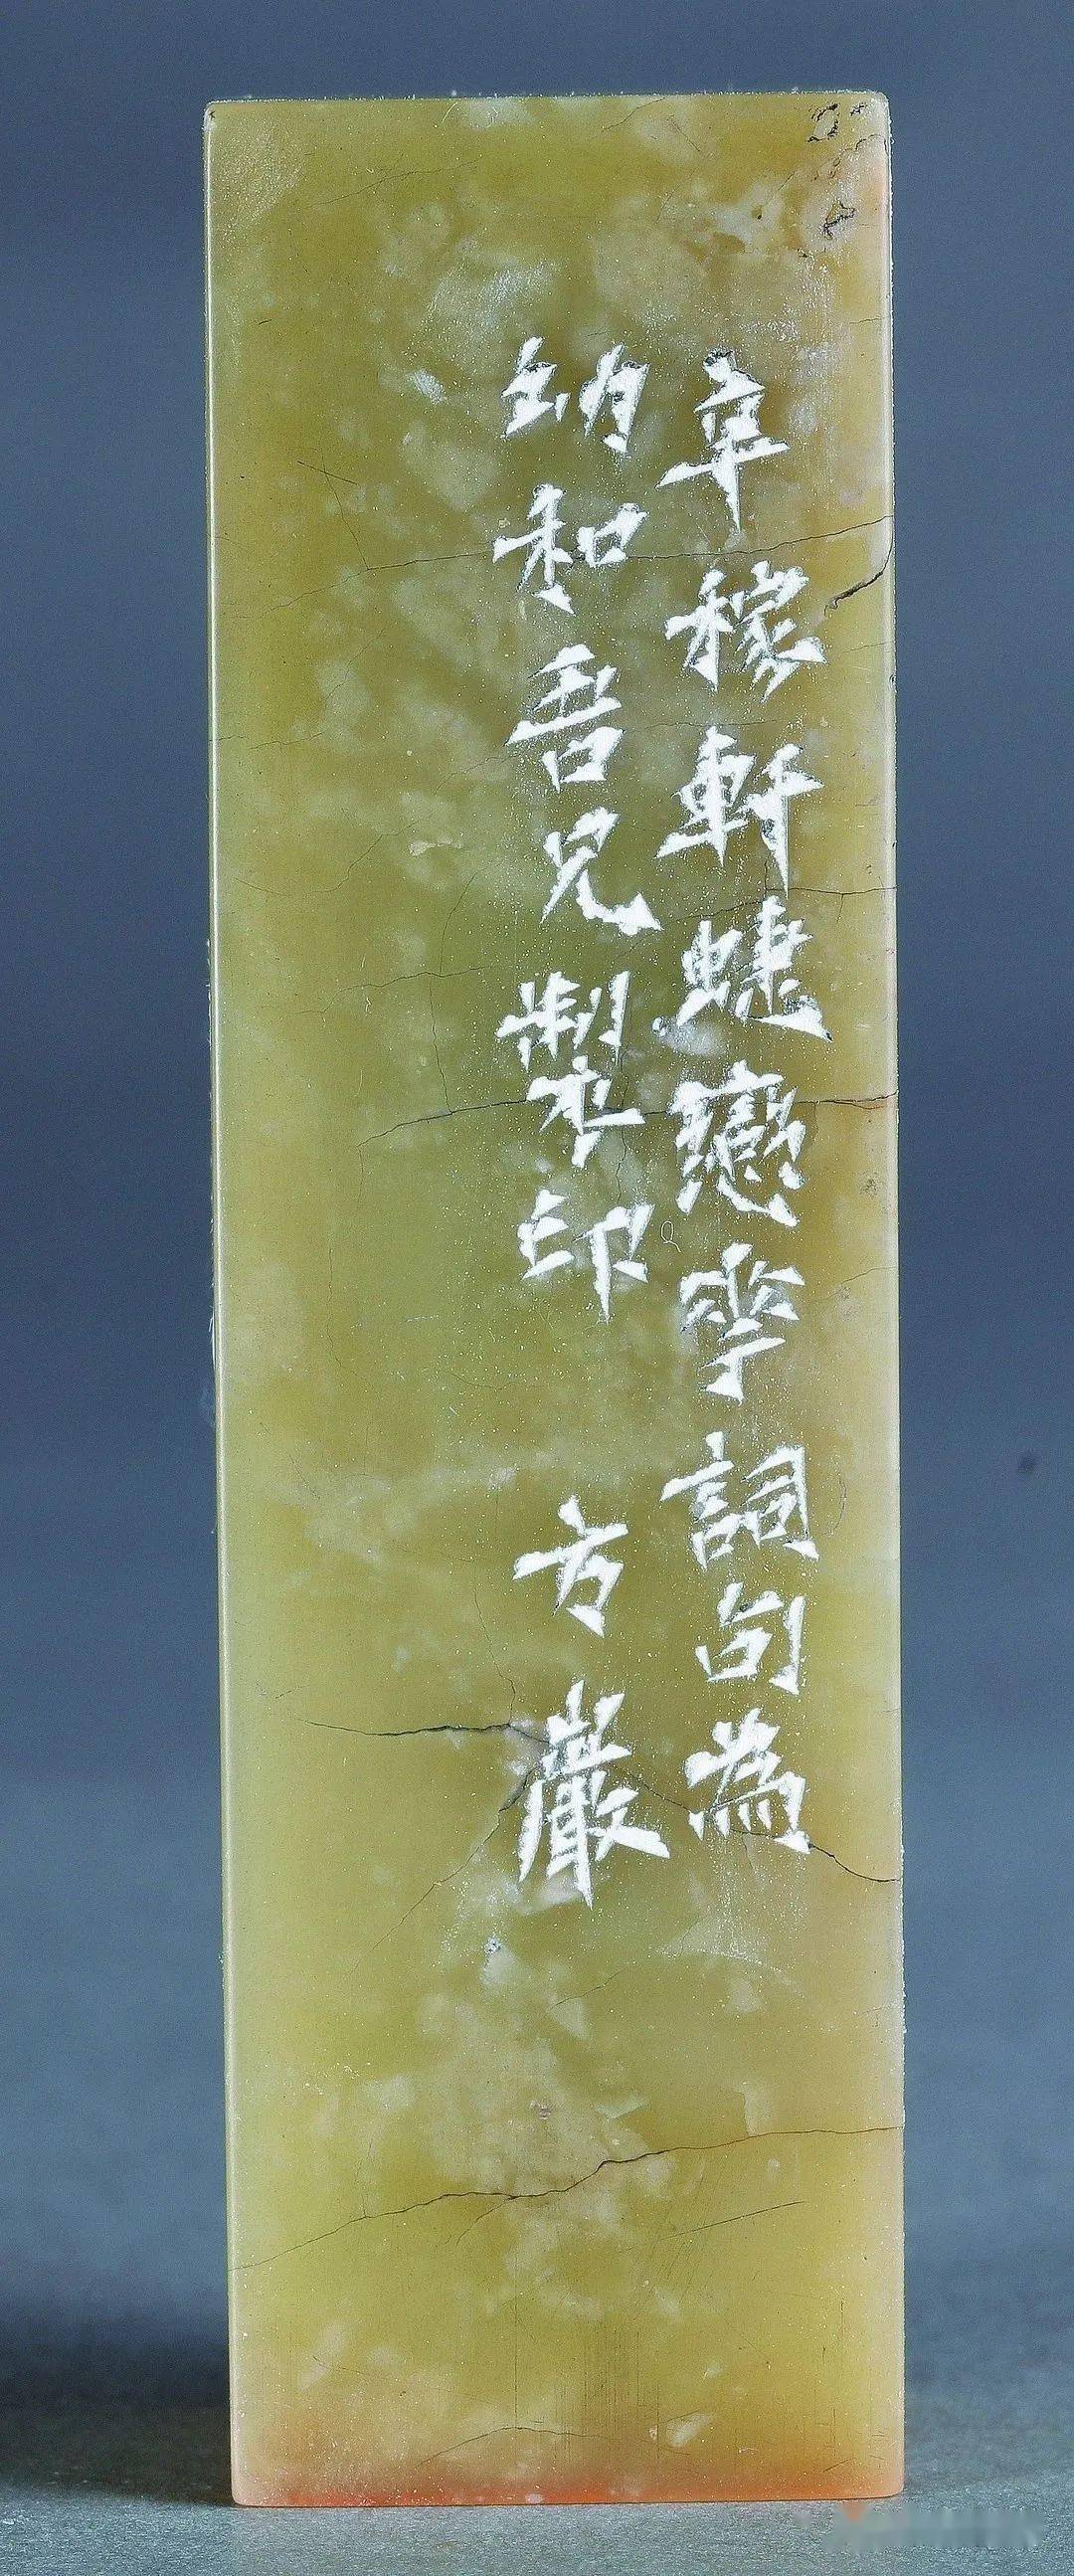 辛稼軒蜨戀華詞句為
幼和吾兄製印 方巖